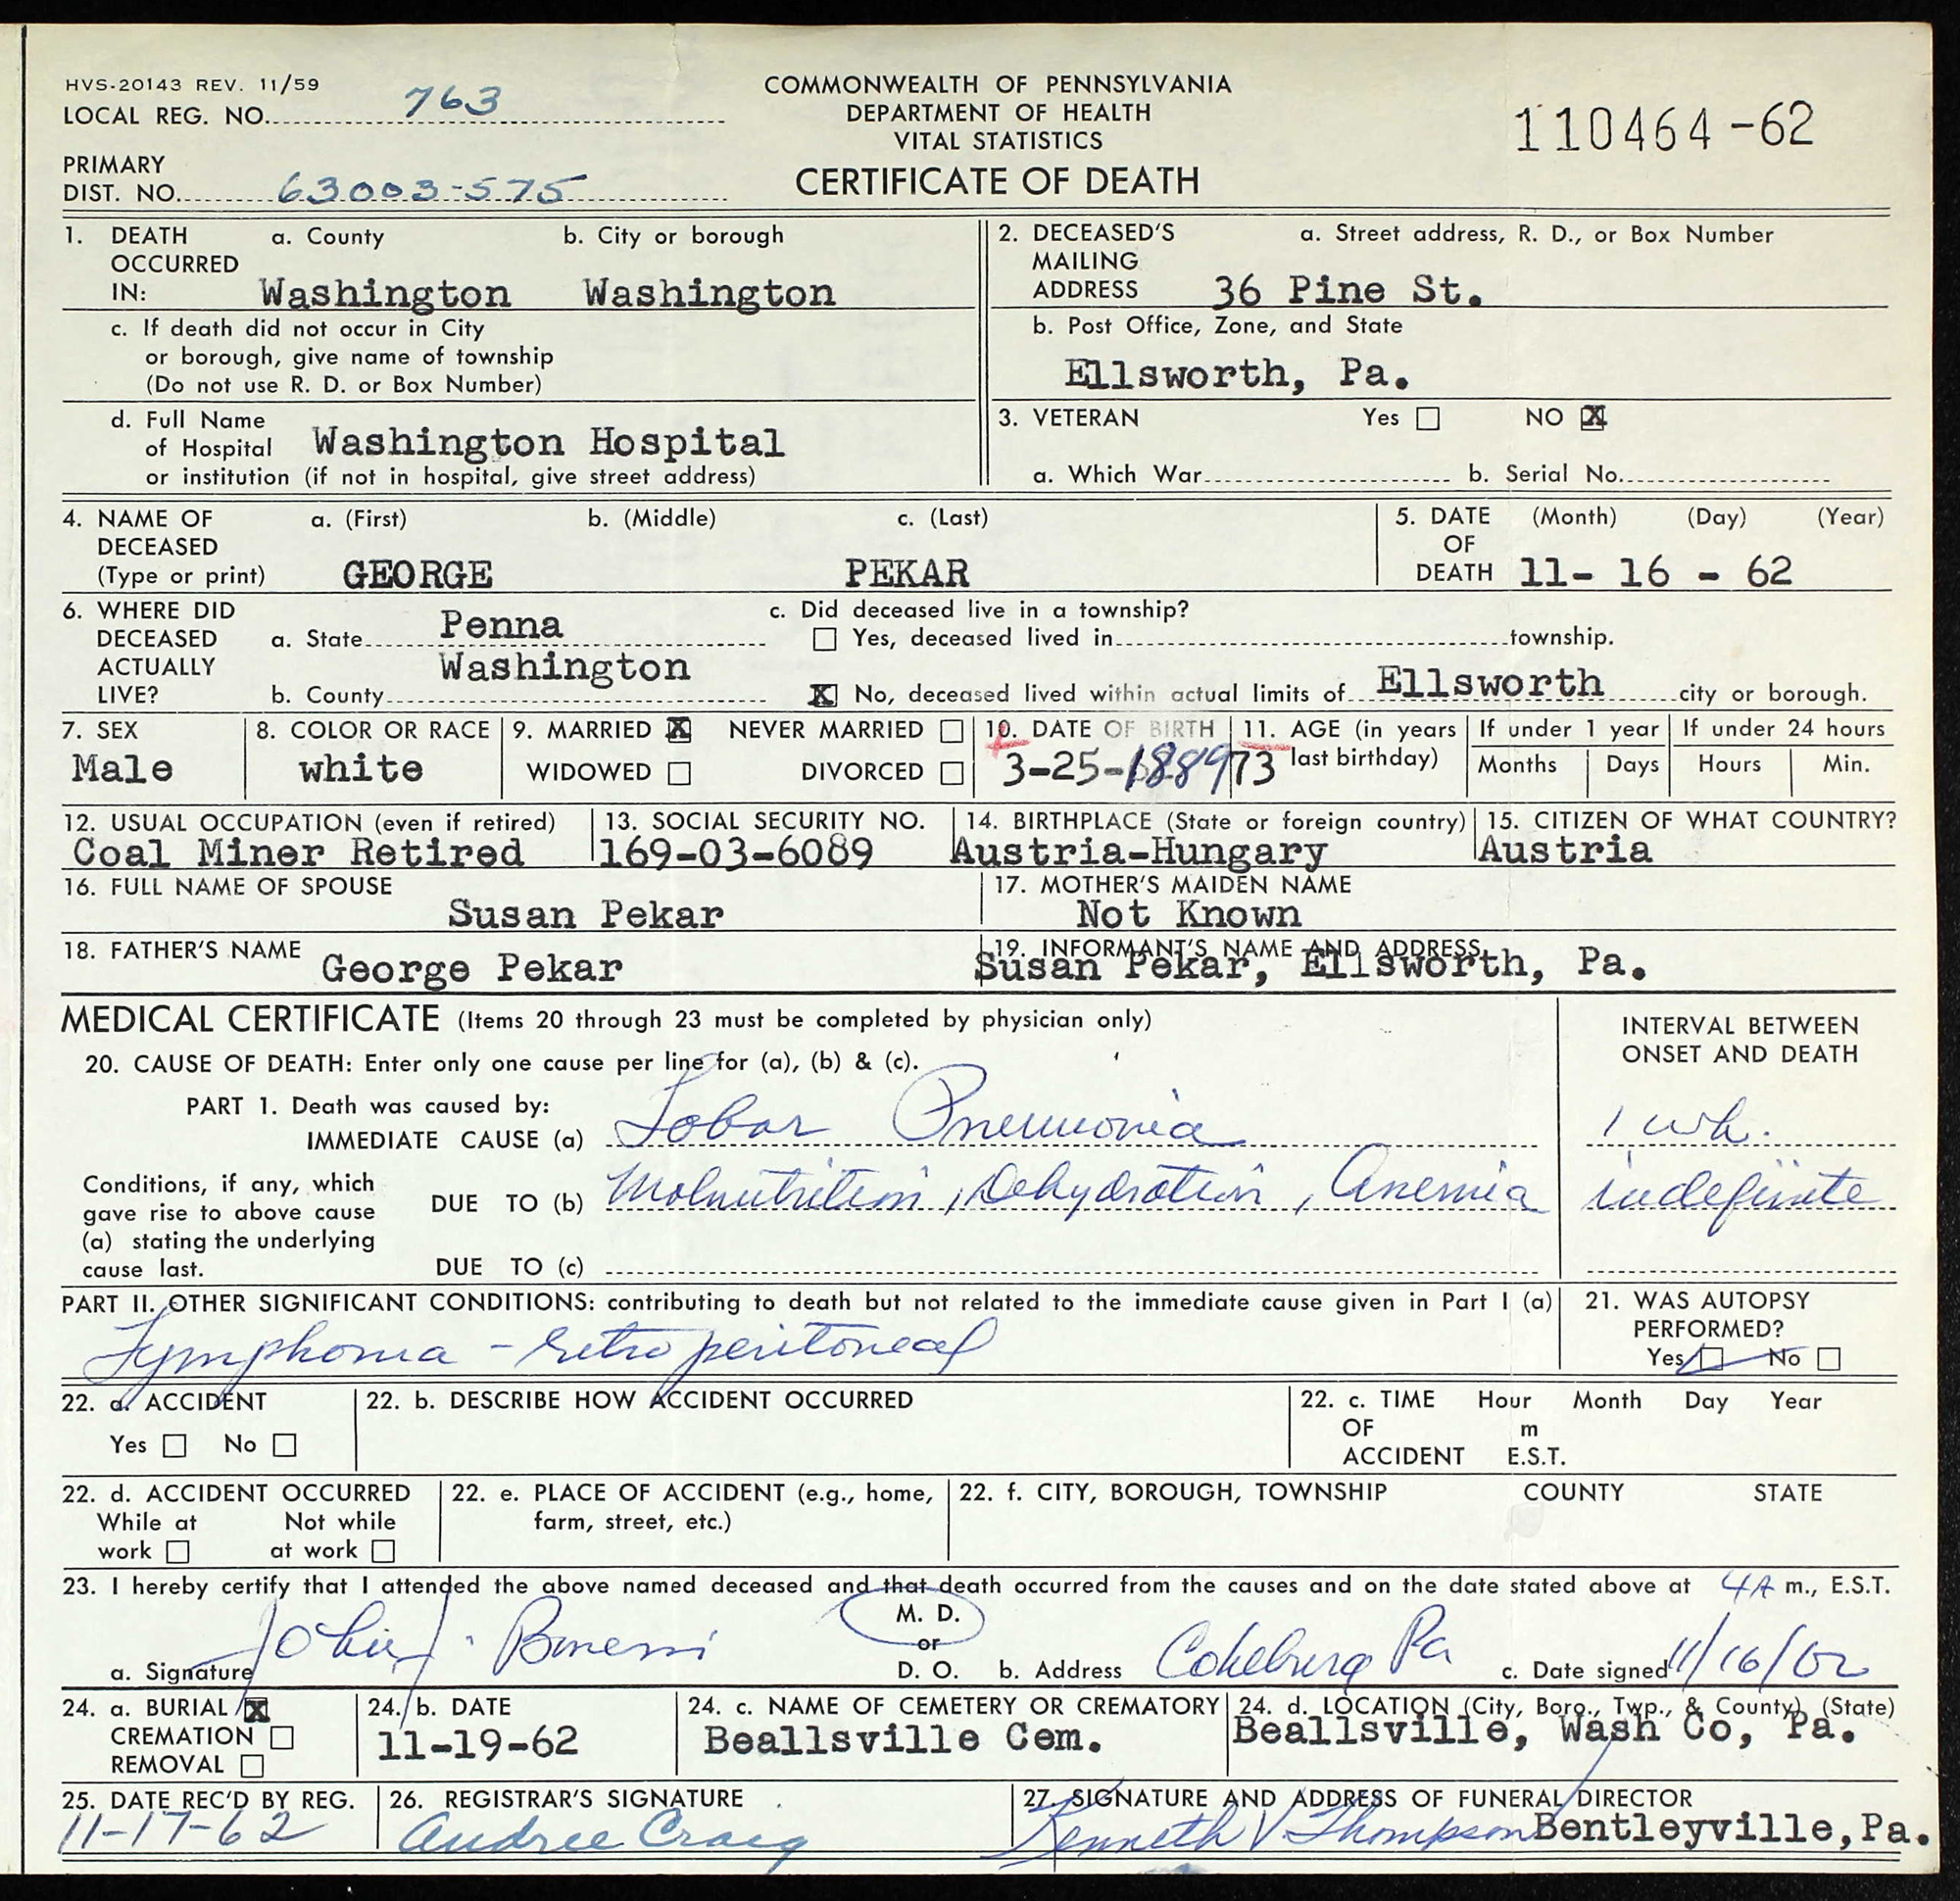 HVS-20143 REV. 11/59
LOCAL REG. NO. 763
COMMONWEALTH OF PENNSYLVANIA
DEPARTMENT OF HEALTH
VITAL STATISTICS
CERTIFICATE OF DEATH
110464-62
PRIMARY
DIST. NO. 63003-575
1. DEATH OCCURRED IN: a. County Washington b. City or borough Washington
c. If death did not occur in City
or borough, give name of township
(Do not use R. D. or Box Number)
d. Full Name
of Hospital Washington Hospital
or institution (if not in hospital, give street address)
2. DECEASED'S MAILING ADDRESS a. Street address, R. D., or Box Number
36 Pine St.
b. Post Office, Zone, and State
Ellsworth, Pa.
3. VETERAN Yes NO X
a. Which War b. Serial No.
4. NAME OF DECEASED (Type or print) a. (First) b. (Middle) c. (Last)
GEORGE PEKAR
5. DATE OF DEATH (Month) (Day) (Year)
11- 16 - 62
6. WHERE DID DECEASED ACTUALLY LIVE?
a. State Penna
b. County Washington
c. Did deceased live in a township?
Yes, deceased lived in township.
X No, deceased lived within actual limits of Ellsworth city or borough.
7. SEX
Male
8. COLOR OR RACE
white
9. MARRIED X NEVER MARRIED
WIDOWED DIVORCED
10. DATE OF BIRTH
3-25-1889
11. AGE (in years last birthday)
73
If under 1 year
Months Days
If under 24 hours
Hours Min.
12. USUAL OCCUPATION (even if retired)
Coal Miner Retired
13. SOCIAL SECURITY NO.
169-03-6089
14. BIRTHPLACE (State or foreign country)
Austria-Hungary
15. CITIZEN OF WHAT COUNTRY?
Austria
16. FULL NAME OF SPOUSE
Susan Pekar
17. MOTHER'S MAIDEN NAME
Not Known
18. FATHER'S NAME
George Pekar
19. INFORMANT'S NAME AND ADDRESS
Susan Pekar, Ellsworth, Pa.
MEDICAL CERTIFICATE (Items 20 through 23 must be completed by physician only)
INTERVAL BETWEEN
ONSET AND DEATH
20. CAUSE OF DEATH: Enter only one cause per line for (a), (b) & (c).
PART 1. Death was caused by:
IMMEDIATE CAUSE (a) Lobar Pneumonia 1 wk.
Conditions, if any, which
gave rise to above cause
(a) stating the underlying
cause last.
DUE TO (b) Malnutrition, Dehydration, Anemia indefinite
DUE TO (c)
PART II. OTHER SIGNIFICANT CONDITIONS: contributing to death but not related to the immediate cause given in Part I (a)
Lymphoma - retroperitoneal
21. WAS AUTOPSY
PERFORMED?
Yes No
22. a. ACCIDENT
Yes No
22. b. DESCRIBE HOW ACCIDENT OCCURRED
22. c. TIME OF ACCIDENT Hour Month Day Year
m
E.S.T.
22. d. ACCIDENT OCCURRED
While at work Not while at work
22. e. PLACE OF ACCIDENT (e.g., home,
farm, street, etc.)
22. f. CITY, BOROUGH, TOWNSHIP COUNTY STATE
23. I hereby certify that I attended the above named deceased and that death occurred from the causes and on the date stated above at 4A m., E.S.T.
a. Signature John J.
M. D.
or
D. O.
b. Address Cokeburg Pa
c. Date signed 11/16/62
24. a. BURIAL X
CREMATION
REMOVAL
24. b. DATE
11-19-62
24. c. NAME OF CEMETERY OR CREMATORY
Beallsville Cem.
24. d. LOCATION (City, Boro., Twp., & County) (State)
Beallsville, Wash Co, Pa.
25. DATE REC'D BY REG.
11-17-62
26. REGISTRAR'S SIGNATURE
Audree Craig
27. SIGNATURE AND ADDRESS OF FUNERAL DIRECTOR
Kenneth V. Thompson Bentleyville, Pa.